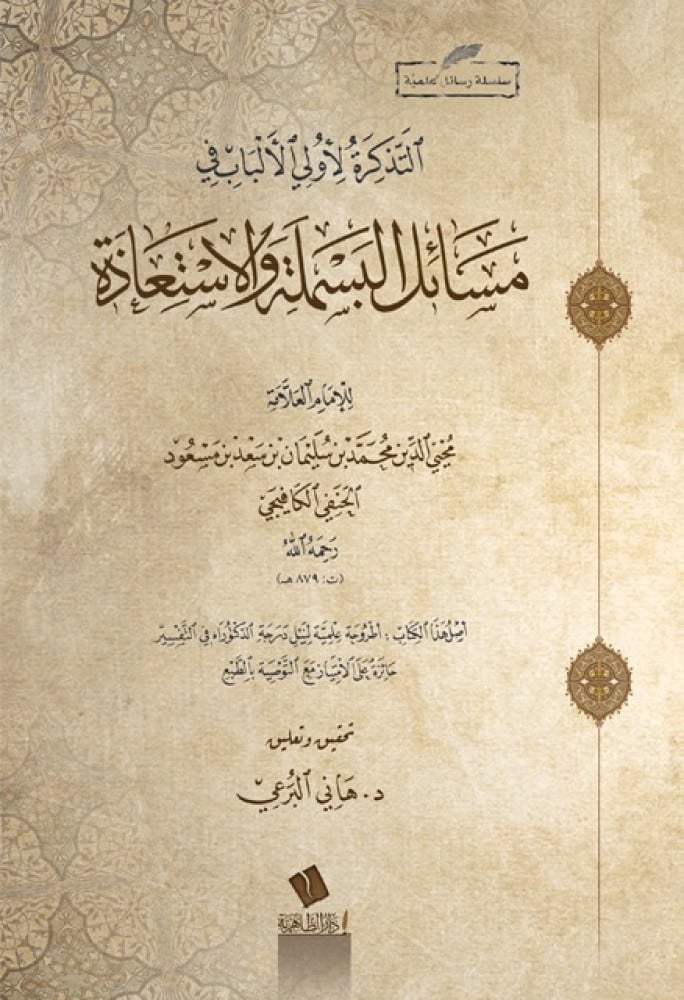 سلسلة رسائل علمية
التَّذْكِرَةُ لِأُولِي الْأَلْبَابِ فِي
مَسَائِلِ الْبَسْمَلَةِ وَالِاسْتِعَاذَةِ
لِلْإِمَامِ الْعَلَّامَةِ
مُحْيِي الدِّينِ مُحَمَّدِ بْنِ سُلَيْمَانَ بْنِ سَعْدِ بْنِ مَسْعُود
الْحَنَفِي الْكَافِيَجِي
رَحِمَهُ اللَّهُ
(ت: ٨٧٩ هـ)
أَصْلُ هَذَا الْكِتَابِ : أُطْرُوحَة عِلْمِيَّة لِنَيْلِ دَرَجَةِ الدُّكْتُورَاه فِي التَّفْسِيرِ
حَائِزَةٌ عَلَى الِامْتِيَازِ مَعَ التَّوْصِيَةِ بِالطَّبْعِ
تحقيق وتعليق
د. هَانِي الْبُرَعِي
دار الظاهرية